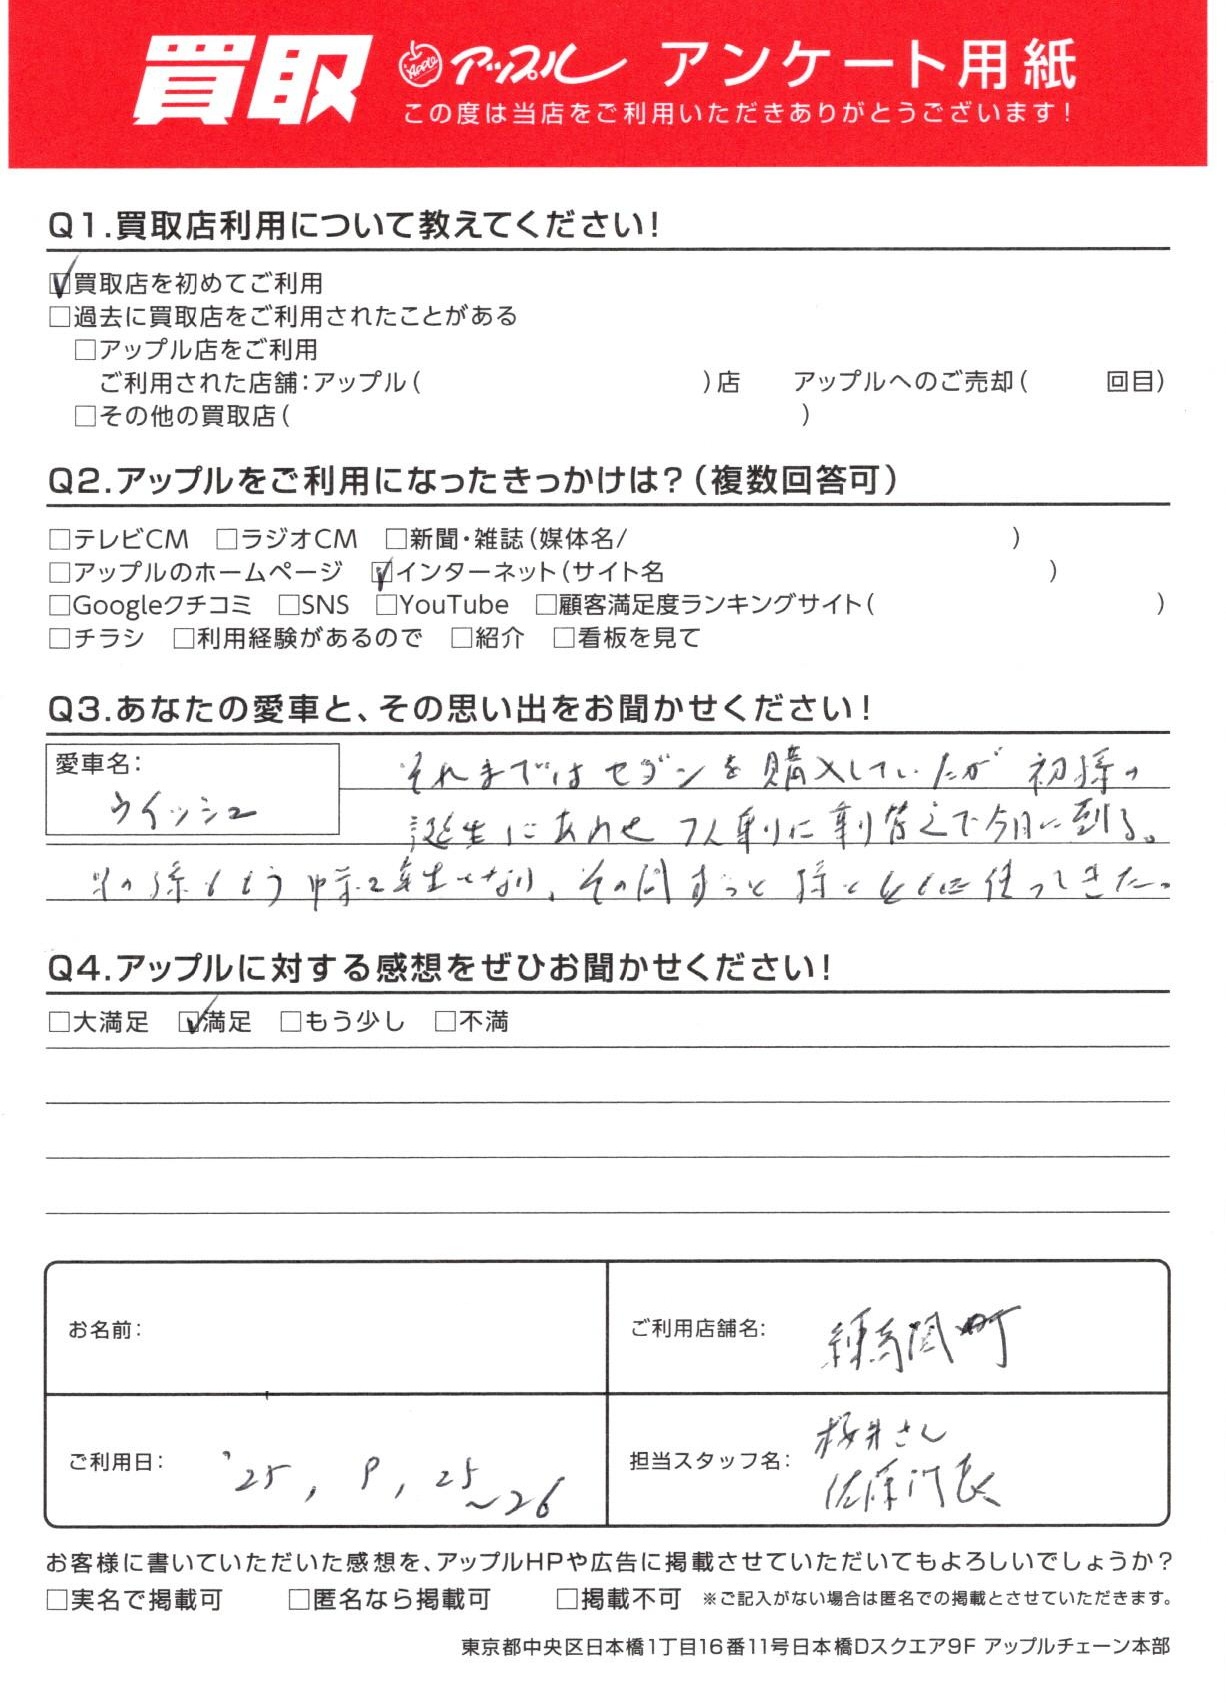 買取 Apple アップル アンケート用紙
この度は当店をご利用いただきありがとうございます!
Q1.買取店利用について教えてください!
買取店を初めてご利用
□過去に買取店をご利用されたことがある
□アップル店をご利用
ご利用された店舗:アップル( )店 アップルへのご売却( 回目)
□その他の買取店( )
Q2.アップルをご利用になったきっかけは?(複数回答可)
□テレビCM □ラジオCM □新聞・雑誌(媒体名/ )
□アップルのホームページ インターネット(サイト名 )
□Googleクチコミ □SNS □YouTube □顧客満足度ランキングサイト( )
□チラシ □利用経験があるので □紹介 □看板を見て
Q3.あなたの愛車と、その思い出をお聞かせください!
愛車名:
ウイッシュ
それまではセダンを購入していたが 初孫の
誕生にあわせ 7人乗りに乗り替えて今日に到る。
その孫ももう中学2年生となり、その間ずっと孫とともに使ってきた。
Q4.アップルに対する感想をぜひお聞かせください!
□大満足 満足 □もう少し □不満
お名前:
ご利用店舗名: 練馬関町
ご利用日: '25, 9, 25~26
担当スタッフ名: 桜井さん
佐藤
お客様に書いていただいた感想を、アップルHPや広告に掲載させていただいてもよろしいでしょうか?
□実名で掲載可 □匿名なら掲載可 □掲載不可 ※ご記入がない場合は匿名での掲載とさせていただきます。
東京都中央区日本橋1丁目16番11号日本橋Dスクエア9F アップルチェーン本部